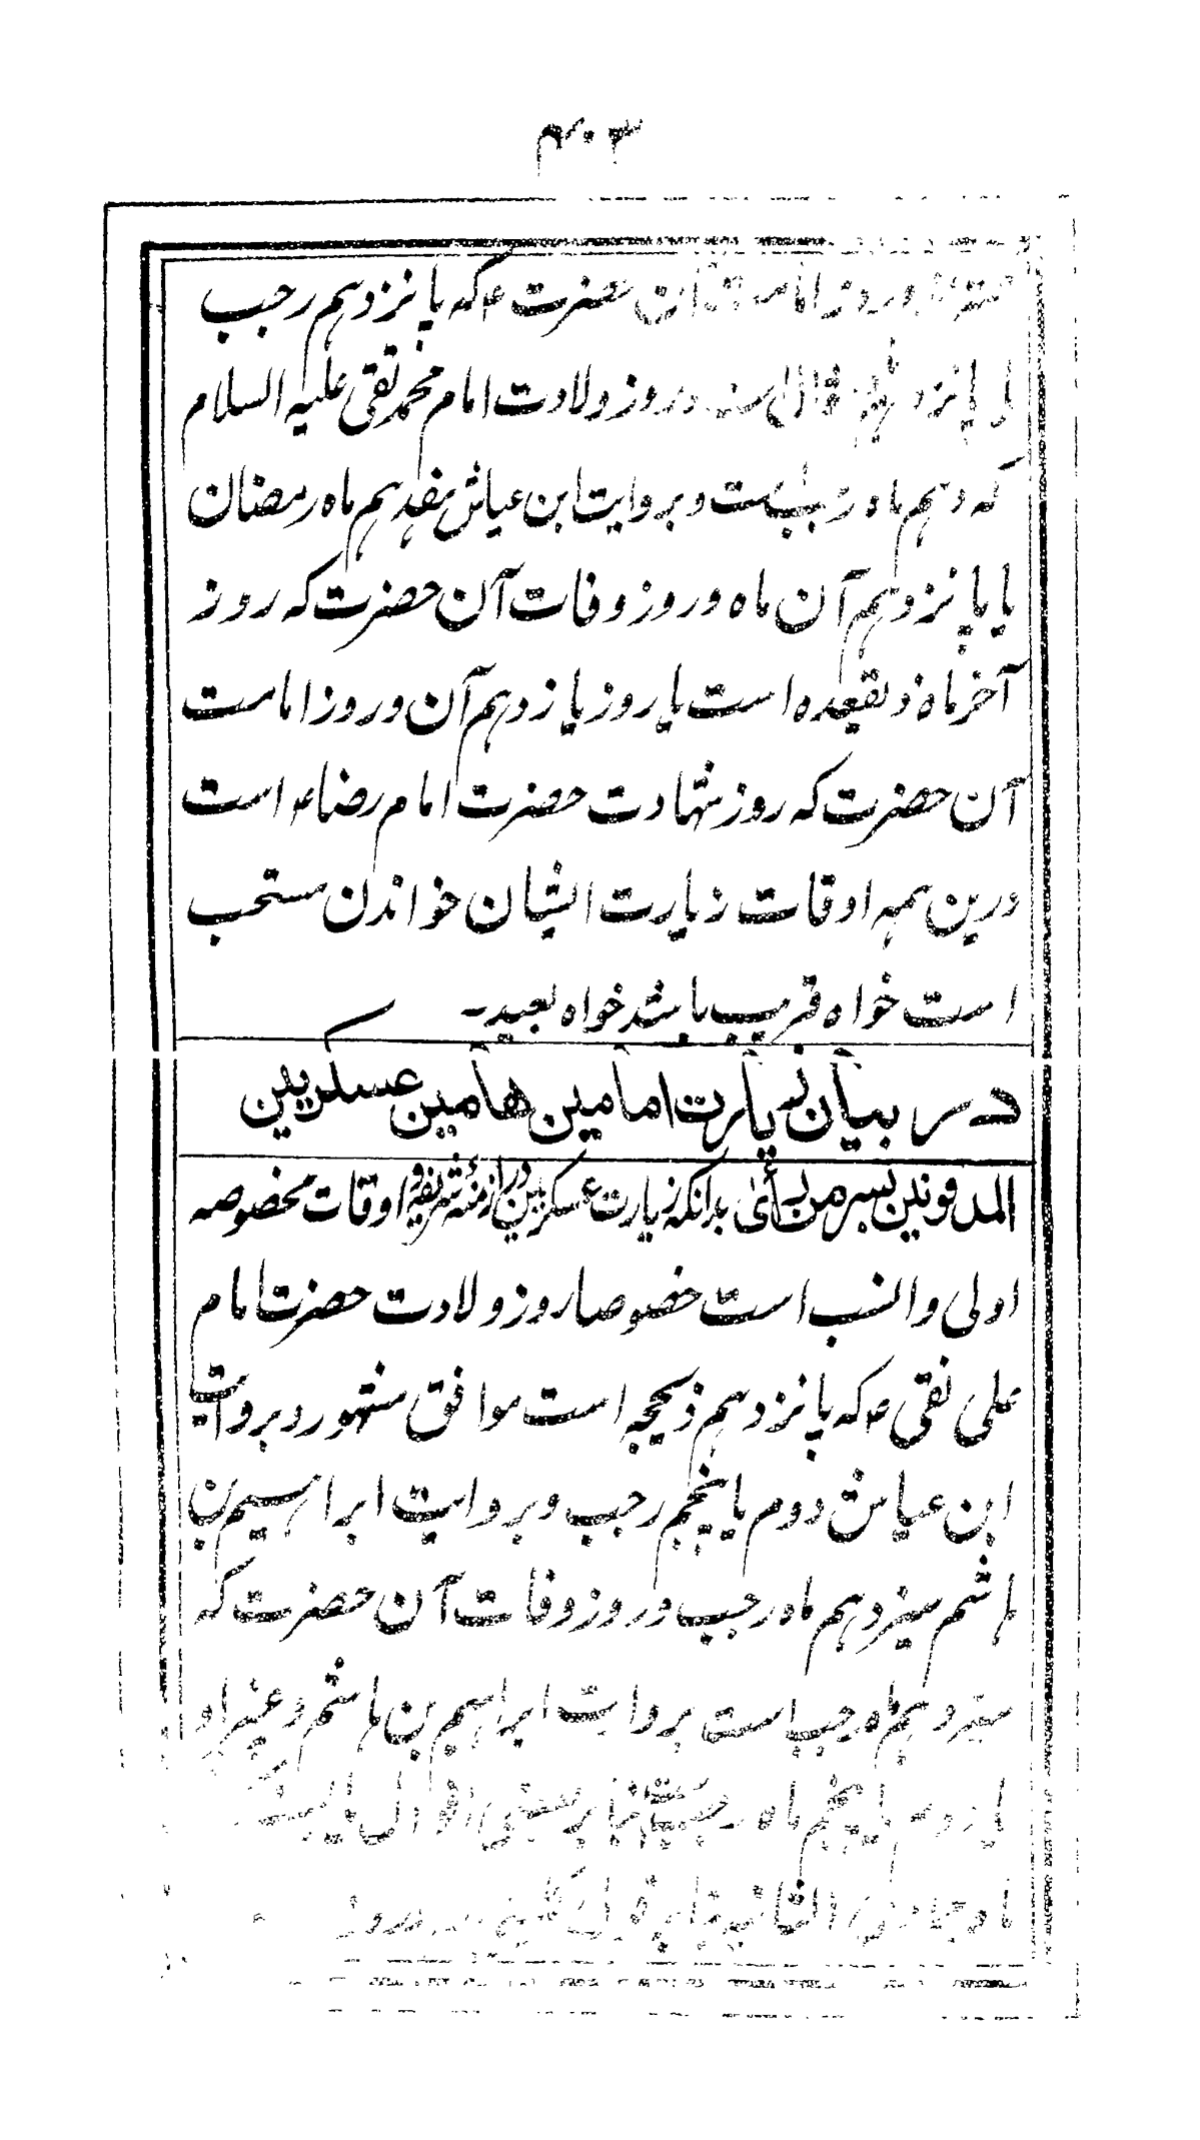 ۴۰۳
و روز امامت آن حضرت ؑ که پانزدهم رجب
یا پانزدهم شوال است و روز ولادت امام محمد تقی علیه السلام
که دهم ماه رجب است و بروایت ابن عیاش هفدهم ماه رمضان
یا پانزدهم آن ماه و روز وفات آن حضرت که روز
آخر ماه ذیقعده است یا روز یازدهم آن و روز امامت
آن حضرت که روز شهادت حضرت امام رضا ؑ است
درین همه اوقات زیارت ایشان خواندن مستحب
است خواه قریب باشد خواه بعید۔
در بیان زیارت امامین هامین عسکریین
المدفونین بسر من رأی بدانکه زیارت عسکریین در ازمنه شریفه و اوقات مخصوصه
اولی و انسب است خصوصا روز ولادت حضرت امام
علی نقی ؑ که پانزدهم ذیحجه است موافق مشهور و بروایت
ابن عیاش دوم یا پنجم رجب و بروایت ابراهیم بن
هاشم سیزدهم ماه رجب و روز وفات آن حضرت که
ماه رجب است بروایت ابراهیم بن هاشم و غیر او
یا دوم یا پنجم ماه رجب بنا بر بعضی اقوال یا بیست
ماه جمادی الثانیه بنا بر قول کلینی و روز